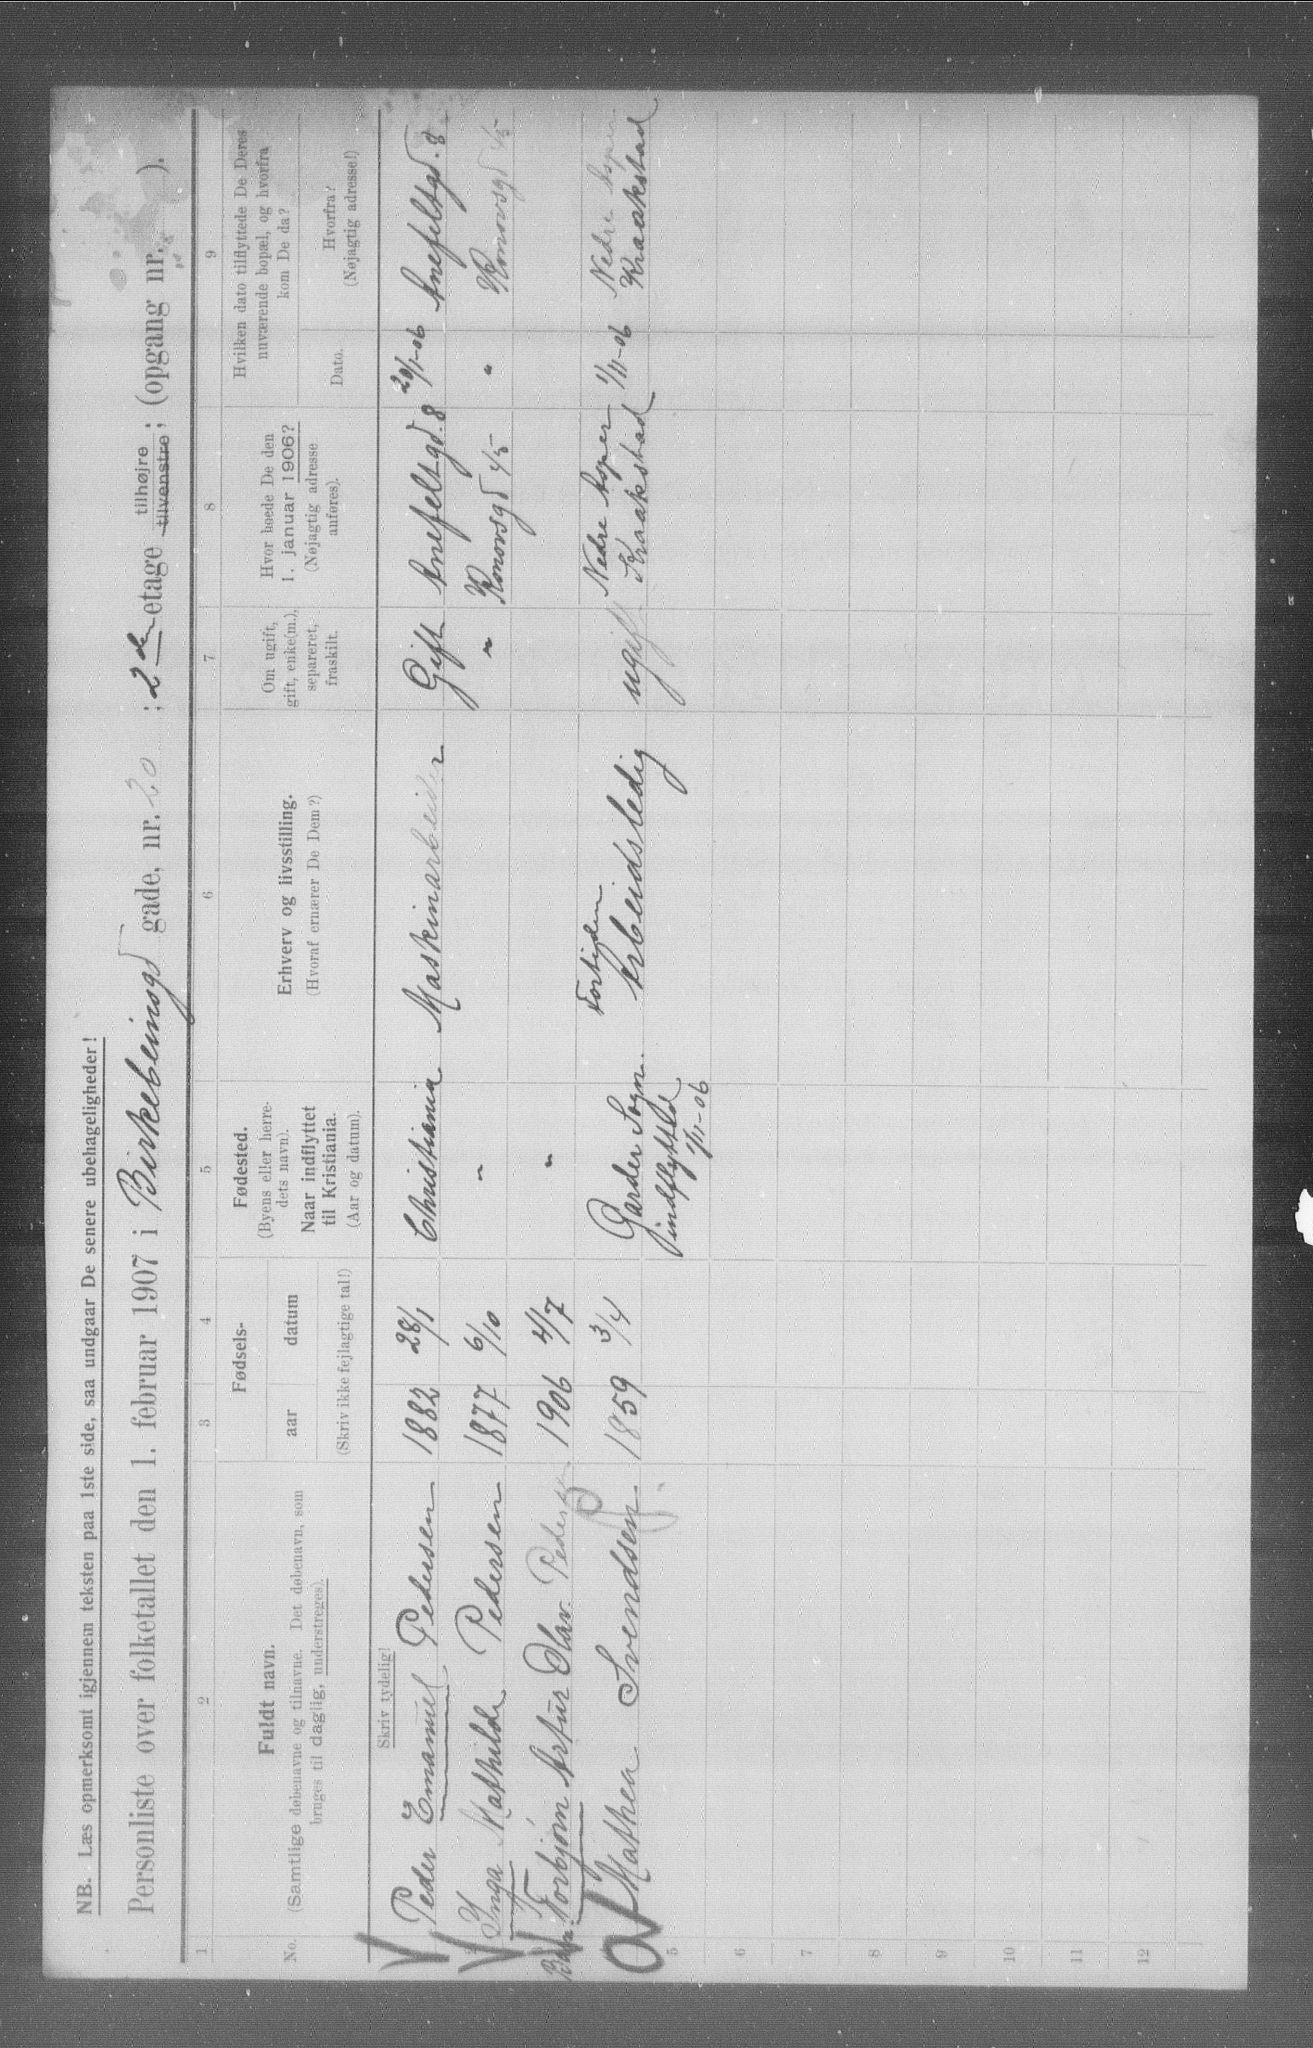 NB. Læs opmerksomt igjennem teksten paa 1ste side, saa undgaar De senere ubehageligheder!
Personliste over folketallet den 1. februar 1907 i Birkebeinsgd gade, nr. 20 ; 2den etage tilhøjre tilvenstre; (opgang nr. ).
1 2 3 4 5 6 7 8 9
No.
Fuldt navn.
(Samtlige døbenavne og tilnavne. Det døbenavn, som
bruges til daglig, understreges).
Fødsels-
aar datum
(Skriv ikke fejlagtige tal!)
Fødested.
(Byens eller herre-
dets navn).
Naar indflyttet
til Kristiania.
(Aar og datum).
Erhverv og livsstilling.
(Hvoraf ernærer De Dem?)
Om ugift,
gift, enke(m.),
separeret,
fraskilt.
Hvor boede De den
1. januar 1906?
(Nøjagtig adresse
anføres).
Hvilken dato tilflyttede De Deres
nuværende bopæl, og hvorfra
kom De da?
Dato.
Hvorfra?
(Nøjagtig adresse!)
Skriv tydelig!
Peder Emanuel Pedersen 1882 28/1 Christiania Maskinarbeider Gift Anefeltgd. 8 20/1-06 Anefeltgd. 8
Inga Mathilde Pedersen 1877 6/10 " " Konowsgd 45 " Konowsgd 45
Torbjørn Artur Olav Pedersen 1906 4/7 "
Mathea Svendsen 1859 3/4 Garder Sogn. Fortiden Arbeidsledig ugift Nedre 1/11-06 Nedre
indflyttet 1/11-06 Kraakstad Kraakstad
5
6
7
8
9
10
11
12